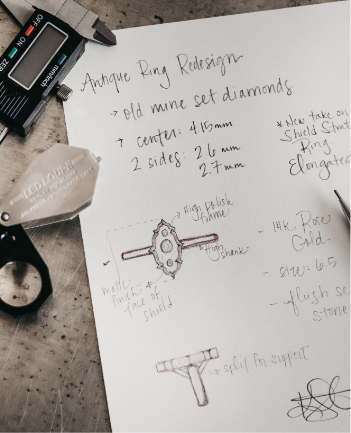 OFF ON
ZERO
mm/inch
Antique Ring Redesign
→ old mine set diamonds
→ center: 4.15mm
2 sides: 2.6 mm
2.7mm
* New take on
Shield Stmt
Ring
Elongated
→ High polish
frame
thin
shank
matte
finish +
face of
shield
- 14k Rose
Gold
- size: 6.5
- flush se
stone
→ split for support